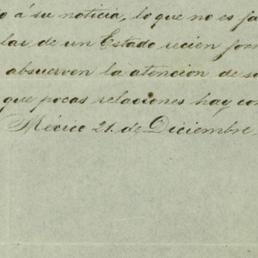 o á su noticia, lo que no es fa
lar de un Estado recien for
absuerven la atencion de s
que pocas relaciones hay con
México 21 de Diciembre